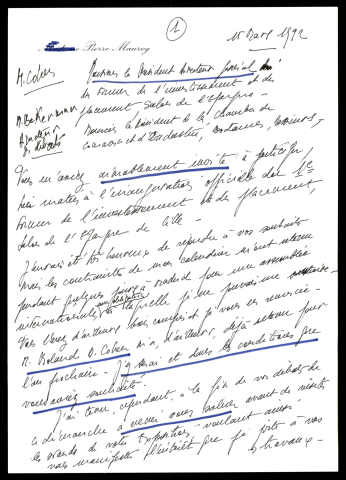 1
15 Mars 1992
Pierre Mauroy
M. Cohen
Monsieur le Président Directeur général du
1er Forum de l'investissement et du
placement, Salon de l'épargne
Monsieur le Président de la Chambre de
Commerce et d'Industrie, Mesdames, Messieurs,
Vous m'avez aimablement invité à participer,
hier matin, à l'inauguration officielle du 1er
Forum de l'investissement et du placement,
Salon de l'Epargne de Lille.
J'aurais été très heureux de répondre à vos souhaits
mais les contraintes de mon calendrier m'ont retenu
pendant quelques jours à Madrid pour une assemblée
internationale à laquelle je ne pouvais me
Vous l'avez d'ailleurs bien compris et je vous en remercie.
M. Bernard D. Cohen m'a, d'ailleurs, déjà retenu pour
l'an prochain. J'y serai et dans les conditions que
vous aurez souhaité.
J'ai tenu, cependant, à la fin de vos débats de
ce dimanche à venir vous saluer avant de visiter
les stands de votre Exposition, voulant aussi
vous manifester l'intérêt que je porte à vos
travaux.